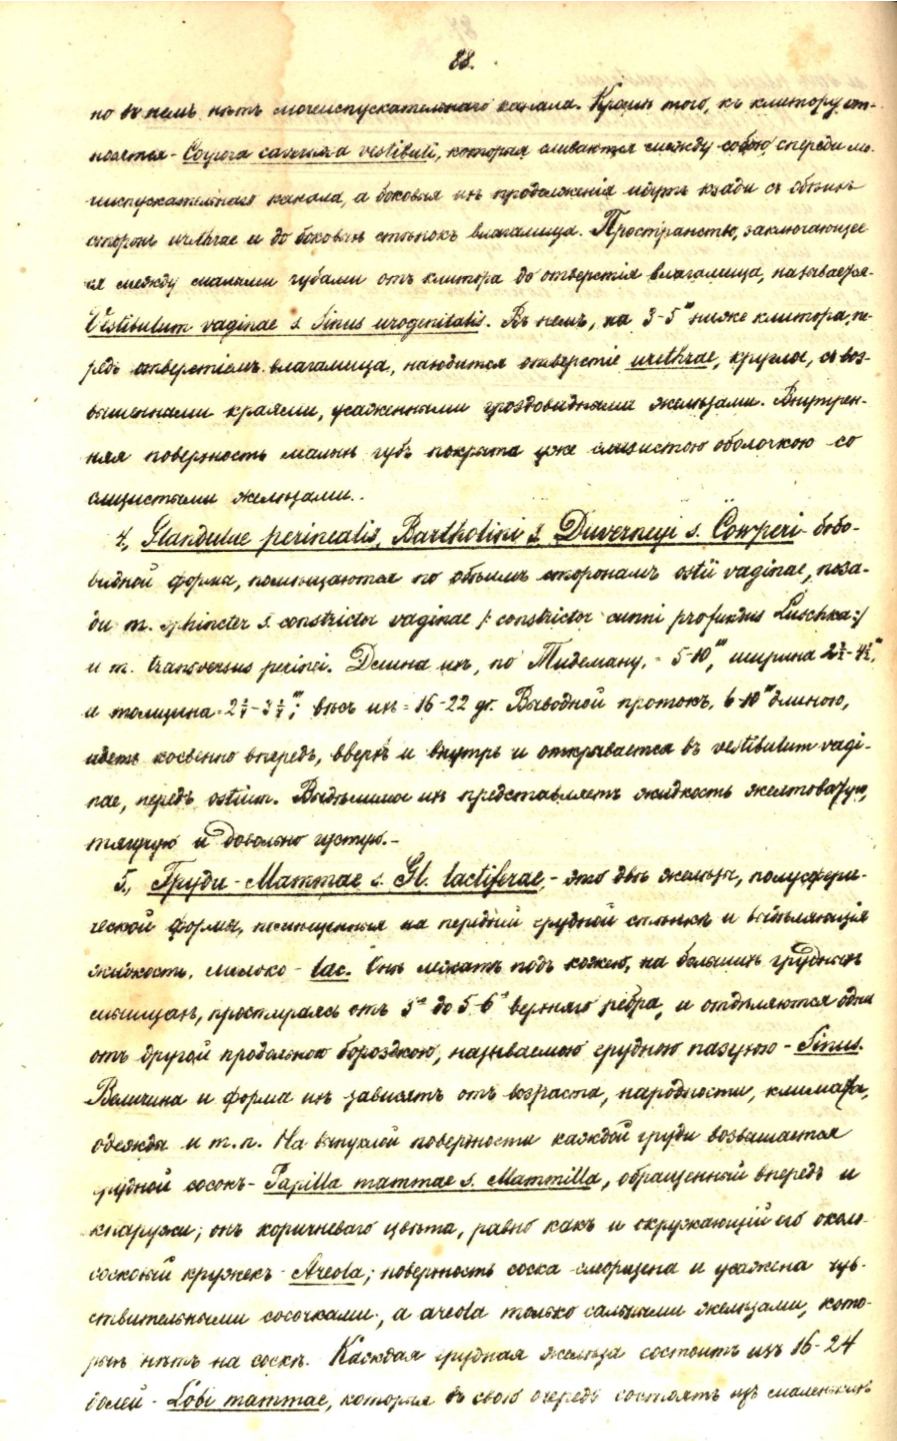 88.
но въ немъ нѣтъ мочеиспускательнаго канала. Кромѣ того, къ клитору от-
носятся - Corpora cavernosa vestibuli, которыя сливаются между собою спереди мо-
чиспускательнаго канала, а боковыя ихъ продолженія идутъ кзади съ обѣихъ
сторонъ urethrae и до боковыхъ стѣнокъ влагалища. Пространство, заключающее-
ся между малыми губами отъ клитора до отверстія влагалища, называется-
Vestibulum vaginae s. Sinus urogenitalis. Въ немъ, на 3-5''' ниже клитора, пе-
редъ отверстіемъ влагалища, находится отверстіе urethrae, круглое, съ воз-
вышенными краями, усаженными гроздовидными железами. Внутрен-
няя поверхность малыхъ губъ покрыта уже слизистою оболочкою со
слизистыми железами..
4., Glandulae perinealis, Bartholini s. Duverneyi s. Cowperi - бобо-
видной формы, помѣщаются по обѣимъ сторонамъ ostii vaginae, поза-
ди m. sphincter s. constrictor vaginae /: constrictor cunni profundus Luschka:/
и m. transversus perinei. Длина ихъ, по Тидеману, = 5-10''', ширина 2½-4½''',
и толщина = 2¼-3¼'''; вѣсъ ихъ = 16-22 gr. Выводной протокъ, 6-10''' длиною,
идетъ косвенно впередъ, вверхъ и внутрь и открывается въ vestibulum vagi-
nae, передъ ostium. Выдѣлимое ихъ представляетъ жидкость желтоватую,
тягучую и довольно густую.-
5., Груди - Mammae s. Gl. lactiferae, - это двѣ железы, полусфери-
ческой формы, помѣщенныя на передней грудной стѣнкѣ и выдѣляющія
жидкость, молоко - lac. Онѣ лежатъ подъ кожею, на большихъ грудныхъ
мышцахъ, простираясь отъ 3го до 5-6го верхняго ребра, и отдѣляются одна
отъ другой продольною бороздкою, называемою грудною пазухою - Sinus.
Величина и форма ихъ зависятъ отъ возраста, народности, климата,
одежды и т.п. На выпуклой поверхности каждой груди возвышается
грудной сосокъ - Papilla mammae s. Mammilla, обращенный впередъ и
кнаружи; онъ коричневаго цвѣта, равно какъ и окружающій его около-
сосковый кружекъ - Areola; поверхность соска сморщена и усажена чув-
ствительными сосочками, а areola только сальными железами, кото-
рыхъ нѣтъ на соскѣ. Каждая грудная железа состоитъ изъ 16-24
долей - Lobi mammae, которыя въ свою очередь состоятъ изъ маленькихъ